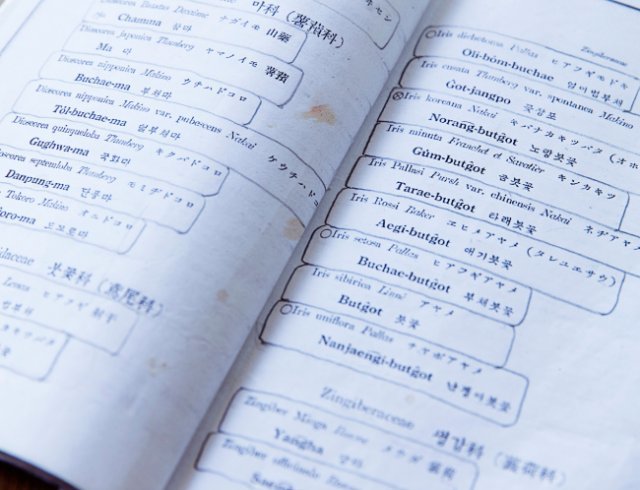 마科 (薯蕷科)
Dioscorea Batatas Decaisne ナガイモ 山藥
Chamma 참마
Dioscorea japonica Thunberg ヤマノイモ 薯蕷
Ma 마
Dioscorea nipponica Makino ウチハドコロ
Buchae-ma 부채마
Dioscorea nipponica Makino var. pubescens Nakai ケウチハドコ
Tŏl-buchae-ma 털부채마
Dioscorea quinqueloba Thunberg キクバドコロ
Gughwa-ma 국화마
Dioscorea septemloba Thunberg モミヂドコロ
Danpung-ma 단풍마
Tokoro Makino オニドコロ
도꼬로마
idaceae 붓꽃科 (鳶尾科)
ヒアフギ 射干
범부채
Zingiberaceae
Iris dichotoma Pallas ヒアフギモドキ
Ŏli-bŏm-buchae 얼이범부채
Iris ensata Thunberg var. spontanea Makino
Ĝot-jangpo 꽃장포
Iris koreana Nakai キバナカキツバタ
Norang-butĝot 노랑붓꽃
Iris minuta Franchet et Savatier キンカキツ
Gŭm-butĝot 금붓꽃
Iris Pallasi Pursh var. chinensis Nakai ネヂアヤ
Tarae-butĝot 타래붓꽃
Iris Rossi Baker エヒメアヤメ (タレユエサウ)
Aegi-butĝot 애기붓꽃
Iris setosa Pallas ヒアフギアヤメ
Buchae-butĝot 부채붓꽃
Iris sibirica Linné アヤメ
Butĝot 붓꽃
Iris uniflora Pallas チャボアヤメ
Nanjaengi-butĝot 난쟁이붓꽃
Zingiberaceae 생강科 (蘘荷科)
Zingiber Mioga Roscoe メウガ 蘘荷
Yangha 양하
Zingiber officinale